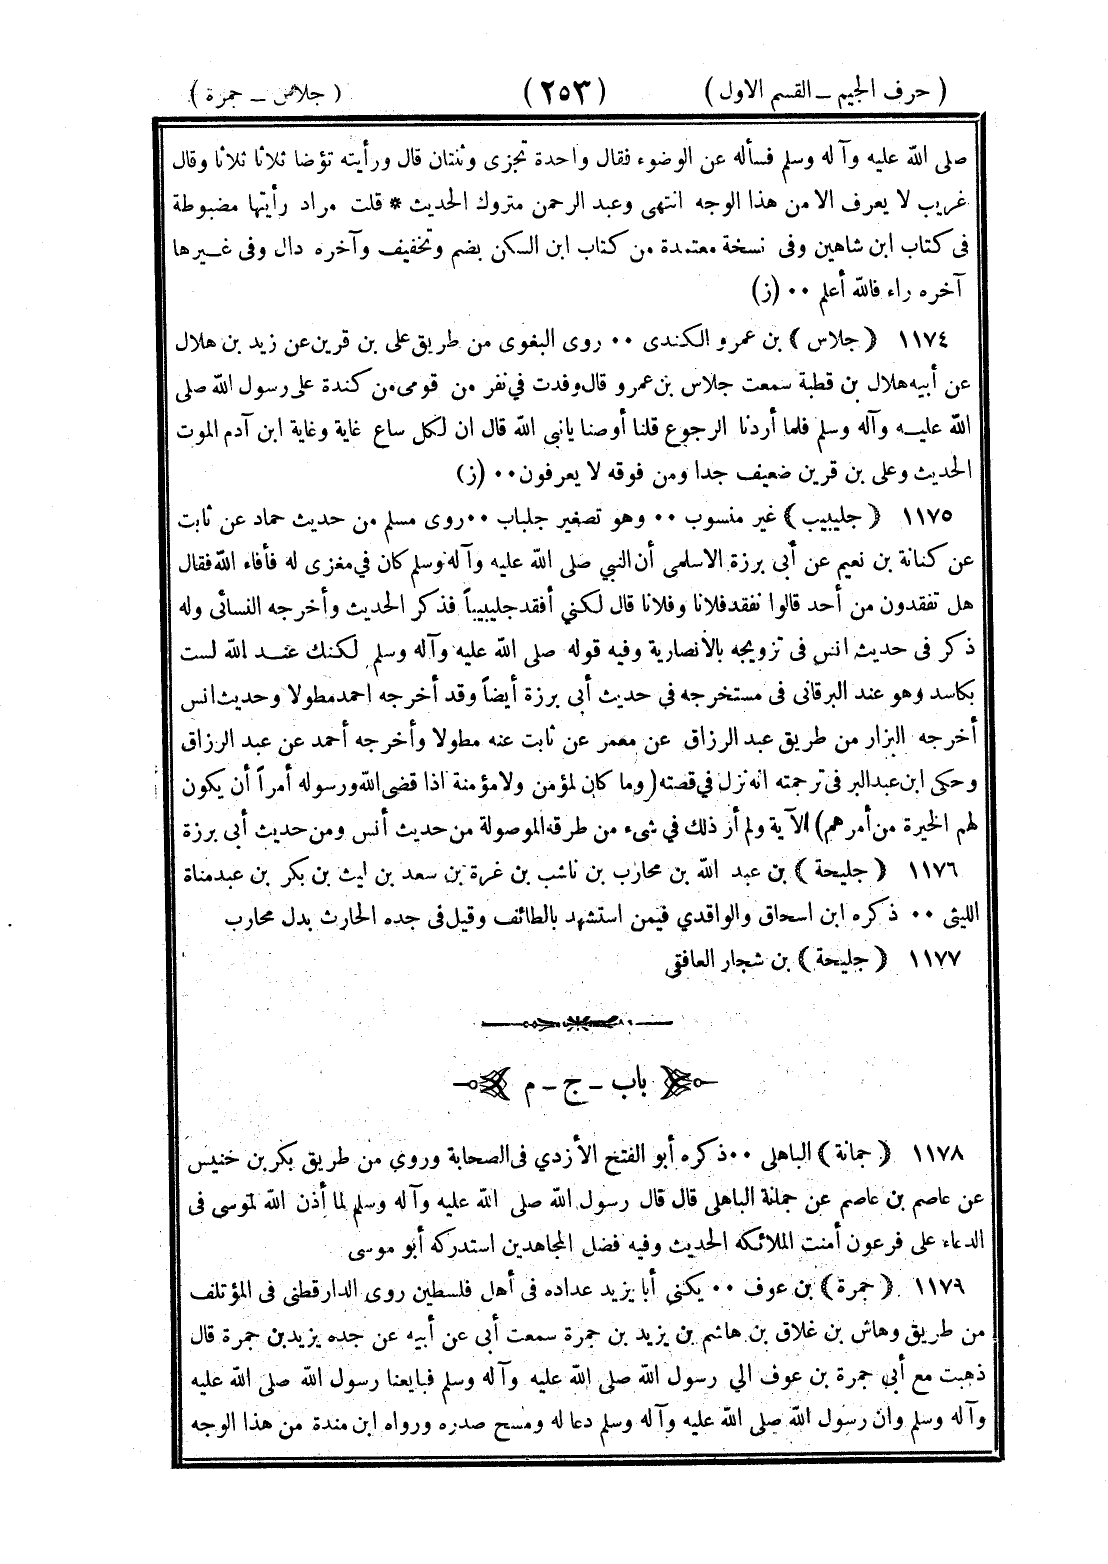 ( حرف الجيم ــ القسم الاول ) (٢٥٣) ( جلاس ــ جمرة )
صلى الله عليه وآله وسلم فسأله عن الوضوء فقال واحدة تجزى وثنتان قال ورأيته تؤضا ثلاثا ثلاثا وقال
غريب لا يعرف الا من هذا الوجه انتهى وعبد الرحمن متروك الحديث * قلت مراد رأيتها مضبوطة
فى كتاب ابن شاهين وفى نسخة معتمدة من كتاب ابن السكن بضم وتخفيف وآخره دال وفى غيرها
آخره راء فالله أعلم ۰۰ (ز)
١١٧٤ ( جلاس ) بن عمرو الكندى ۰۰ روى البغوى من طريق على بن قرين عن زيد بن هلال
عن أبيه هلال بن قطبة سمعت جلاس بن عمرو قال وفدت في نفر من قومى من كندة على رسول الله صلى
الله عليه وآله وسلم فلما أردنا الرجوع قلنا أوصنا يانبى الله قال ان لكل ساع غاية وغاية ابن آدم الموت
الحديث وعلى بن قرين ضعيف جدا ومن فوقه لا يعرفون ۰۰ (ز)
١١٧٥ ( جليبيب ) غير منسوب ۰۰ وهو تصغير جلباب ۰۰ روى مسلم من حديث حماد عن ثابت
عن كنانة بن نعيم عن أبى برزة الاسلمى أن النبي صلى الله عليه وآله وسلم كان في مغزى له فأفاء الله فقال
هل تفقدون من أحد قالوا نفقد فلانا وفلانا قال لكني أفقد جليبيباً فذكر الحديث وأخرجه النسائى وله
ذكر فى حديث انس فى تزويجه بالانصارية وفيه قوله صلى الله عليه وآله وسلم لكنك عند الله لست
بكاسد وهو عند البرقانى فى مستخرجه في حديث أبى برزة أيضاً وقد أخرجه احمد مطولا وحديث انس
أخرجه البزار من طريق عبد الرزاق عن معمر عن ثابت عنه مطولا وأخرجه أحمد عن عبد الرزاق
وحكى ابن عبد البر فى ترجمته انه نزل في قصته (وما كان لمؤمن ولا مؤمنة اذا قضى الله ورسوله أمراً أن يكون
لهم الخيرة من أمرهم) الآية ولم أر ذلك في شىء من طرقه الموصولة من حديث أنس ومن حديث أبى برزة
١١٧٦ ( جليحة ) بن عبد الله بن محارب بن ناشب بن غرة بن سعد بن ليث بن بكر بن عبد مناة
الليثى ۰۰ ذكره ابن اسحاق والواقدي فيمن استشهد بالطائف وقيل فى جده الحارث بدل محارب
١١٧٧ ( جليحة ) بن شجار العافقى
باب ــ ج ــ م
١١٧٨ ( جمانة ) الباهلى ۰۰ ذكره أبو الفتح الأزدي فى الصحابة وروي من طريق بكر بن خنيس
عن عاصم بن عاصم عن جمانة الباهلى قال قال رسول الله صلى الله عليه وآله وسلم لما أذن الله لموسى فى
الدعاء على فرعون أمنت الملائكه الحديث وفيه فضل المجاهدين استدركه أبو موسى
١١٧٩ ( جمرة ) بن عوف ۰۰ يكنى أبا يزيد عداده فى أهل فلسطين روى الدارقطنى فى المؤتلف
من طريق وهاش بن غلاق بن هاشم بن يزيد بن جمرة سمعت أبي عن أبيه عن جده يزيد بن جمرة قال
ذهبت مع أبي جمرة بن عوف الي رسول الله صلى الله عليه وآله وسلم فبايعنا رسول الله صلى الله عليه
وآله وسلم وان رسول الله صلى الله عليه وآله وسلم دعا له ومسح صدره ورواه ابن مندة من هذا الوجه